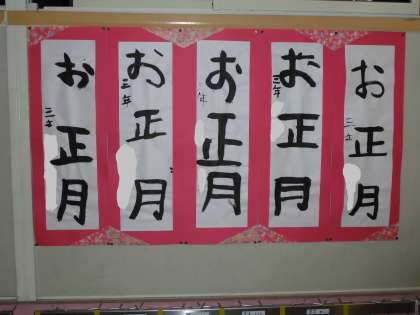 お正月
三年
お正月
三年
お正月
年
お正月
三年
お正月
三年